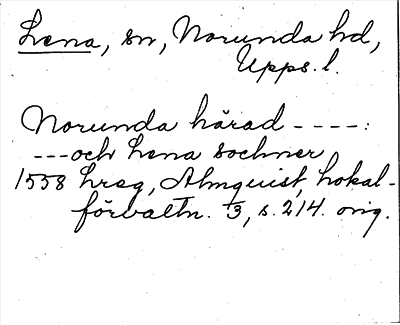 Lena, sn, Norunda hd,
Upps. l.
Norunda härad ----:
---och Lena sochner
1558 hreg, Almquist, Lokal-
förvaltn. 1/3, s. 214. orig.